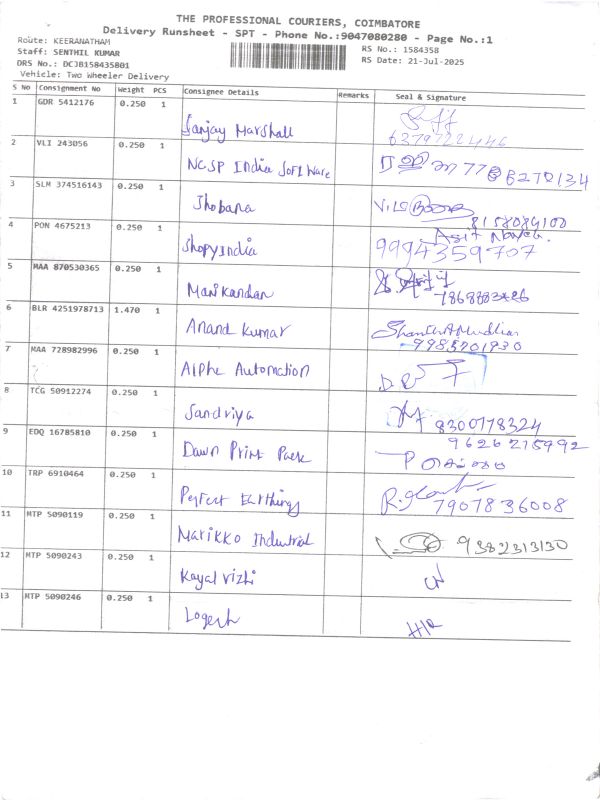 THE PROFESSIONAL COURIERS, COIMBATORE
Delivery Runsheet - SPT - Phone No.:9047080280 - Page No.:1
Route: KEERANATHAM
RS No.: 1584358
Staff: SENTHIL KUMAR
RS Date: 21-Jul-2025
DRS No.: DCJB158435801
Vehicle: Two Wheeler Delivery
S No Consignment No Weight PCS Consignee Details Remarks Seal & Signature
1 GDR 5412176 0.250 1 Sanjay Marshall
6379722446
2 VLI 243056 0.250 1 NCSP India Software
3 SLM 374516143 0.250 1 Shobana
8158084100
4 PON 4675213 0.250 1 Shopyindia 9994359707
5 MAA 870530365 0.250 1 Manikandan
6 BLR 4251978713 1.470 1 Anand Kumar
7 MAA 728982996 0.250 1 Alphe Automation
8 TCG 50912274 0.250 1 Sandriya 8300178324
9 EDQ 16785810 0.250 1 Dawn Print Pack 9626215992
10 TRP 6910464 0.250 1 Perfect Earthings 7907836008
11 MTP 5090119 0.250 1 Marikko Industrial 9382313130
12 MTP 5090243 0.250 1 Kayal vizhi
13 MTP 5090246 0.250 1 Logesh